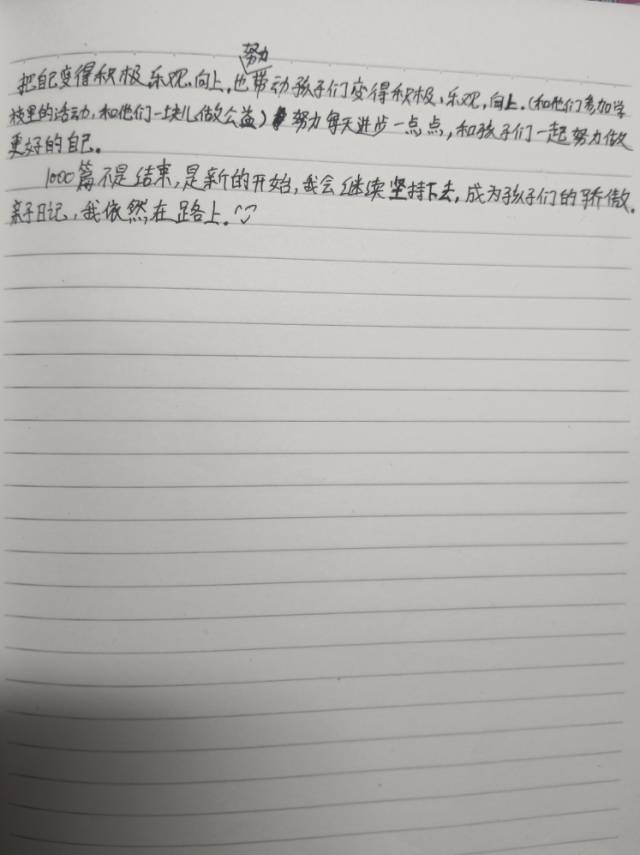 努力
把自己变得积极、乐观、向上,也带动孩子们变得积极、乐观,向上。(和他们参加学
校里的活动,和他们一块儿做公益)努力每天进步一点点,和孩子们一起努力做
更好的自己。
1000篇不是结束,是新的开始,我会继续坚持下去,成为孩子们的骄傲。
亲子日记,我依然在路上。